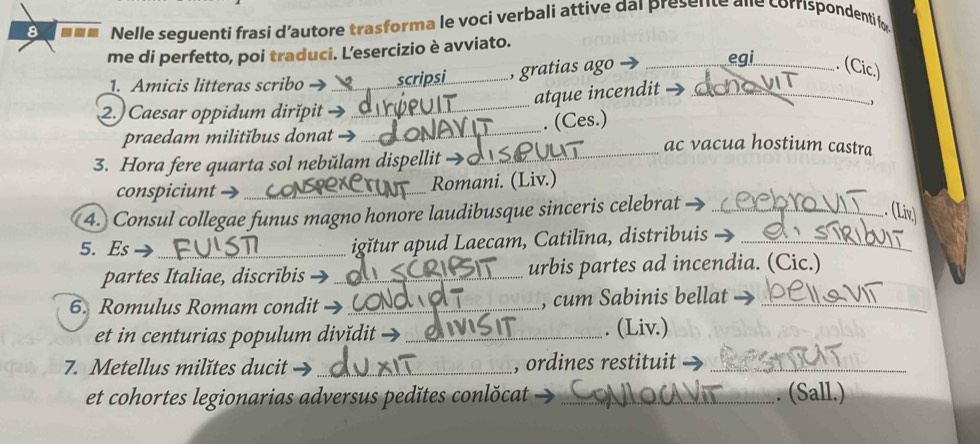 8 Nelle seguenti frasi d'autore trasforma le voci verbali attive dal presente alle corrispondenti for
me di perfetto, poi traduci. L'esercizio è avviato.
1. Amicis litteras scribo → scripsi, gratias ago → egi. (Cic.)
2. Caesar oppidum dirĭpit → diripuit atque incendit → donavit,
praedam militĭbus donat → donavit. (Ces.)
3. Hora fere quarta sol nebŭlam dispellit → dispulit ac vacua hostium castra
conspiciunt → conspexerunt Romani. (Liv.)
4. Consul collegae funus magno honore laudibusque sinceris celebrat → celebravit. (Liv.)
5. Es → FUISTI igĭtur apud Laecam, Catilīna, distribuis → diSTRIBUIT
partes Italiae, discrībis → diSCRIPSIT urbis partes ad incendia. (Cic.)
6. Romulus Romam condit → condidit, cum Sabinis bellat → bellavit
et in centurias populum divĭdit → diVISIT. (Liv.)
7. Metellus milĭtes ducit → duxIT, ordines restituit →
et cohortes legionarias adversus pedĭtes conlŏcat → conlocavit. (Sall.)